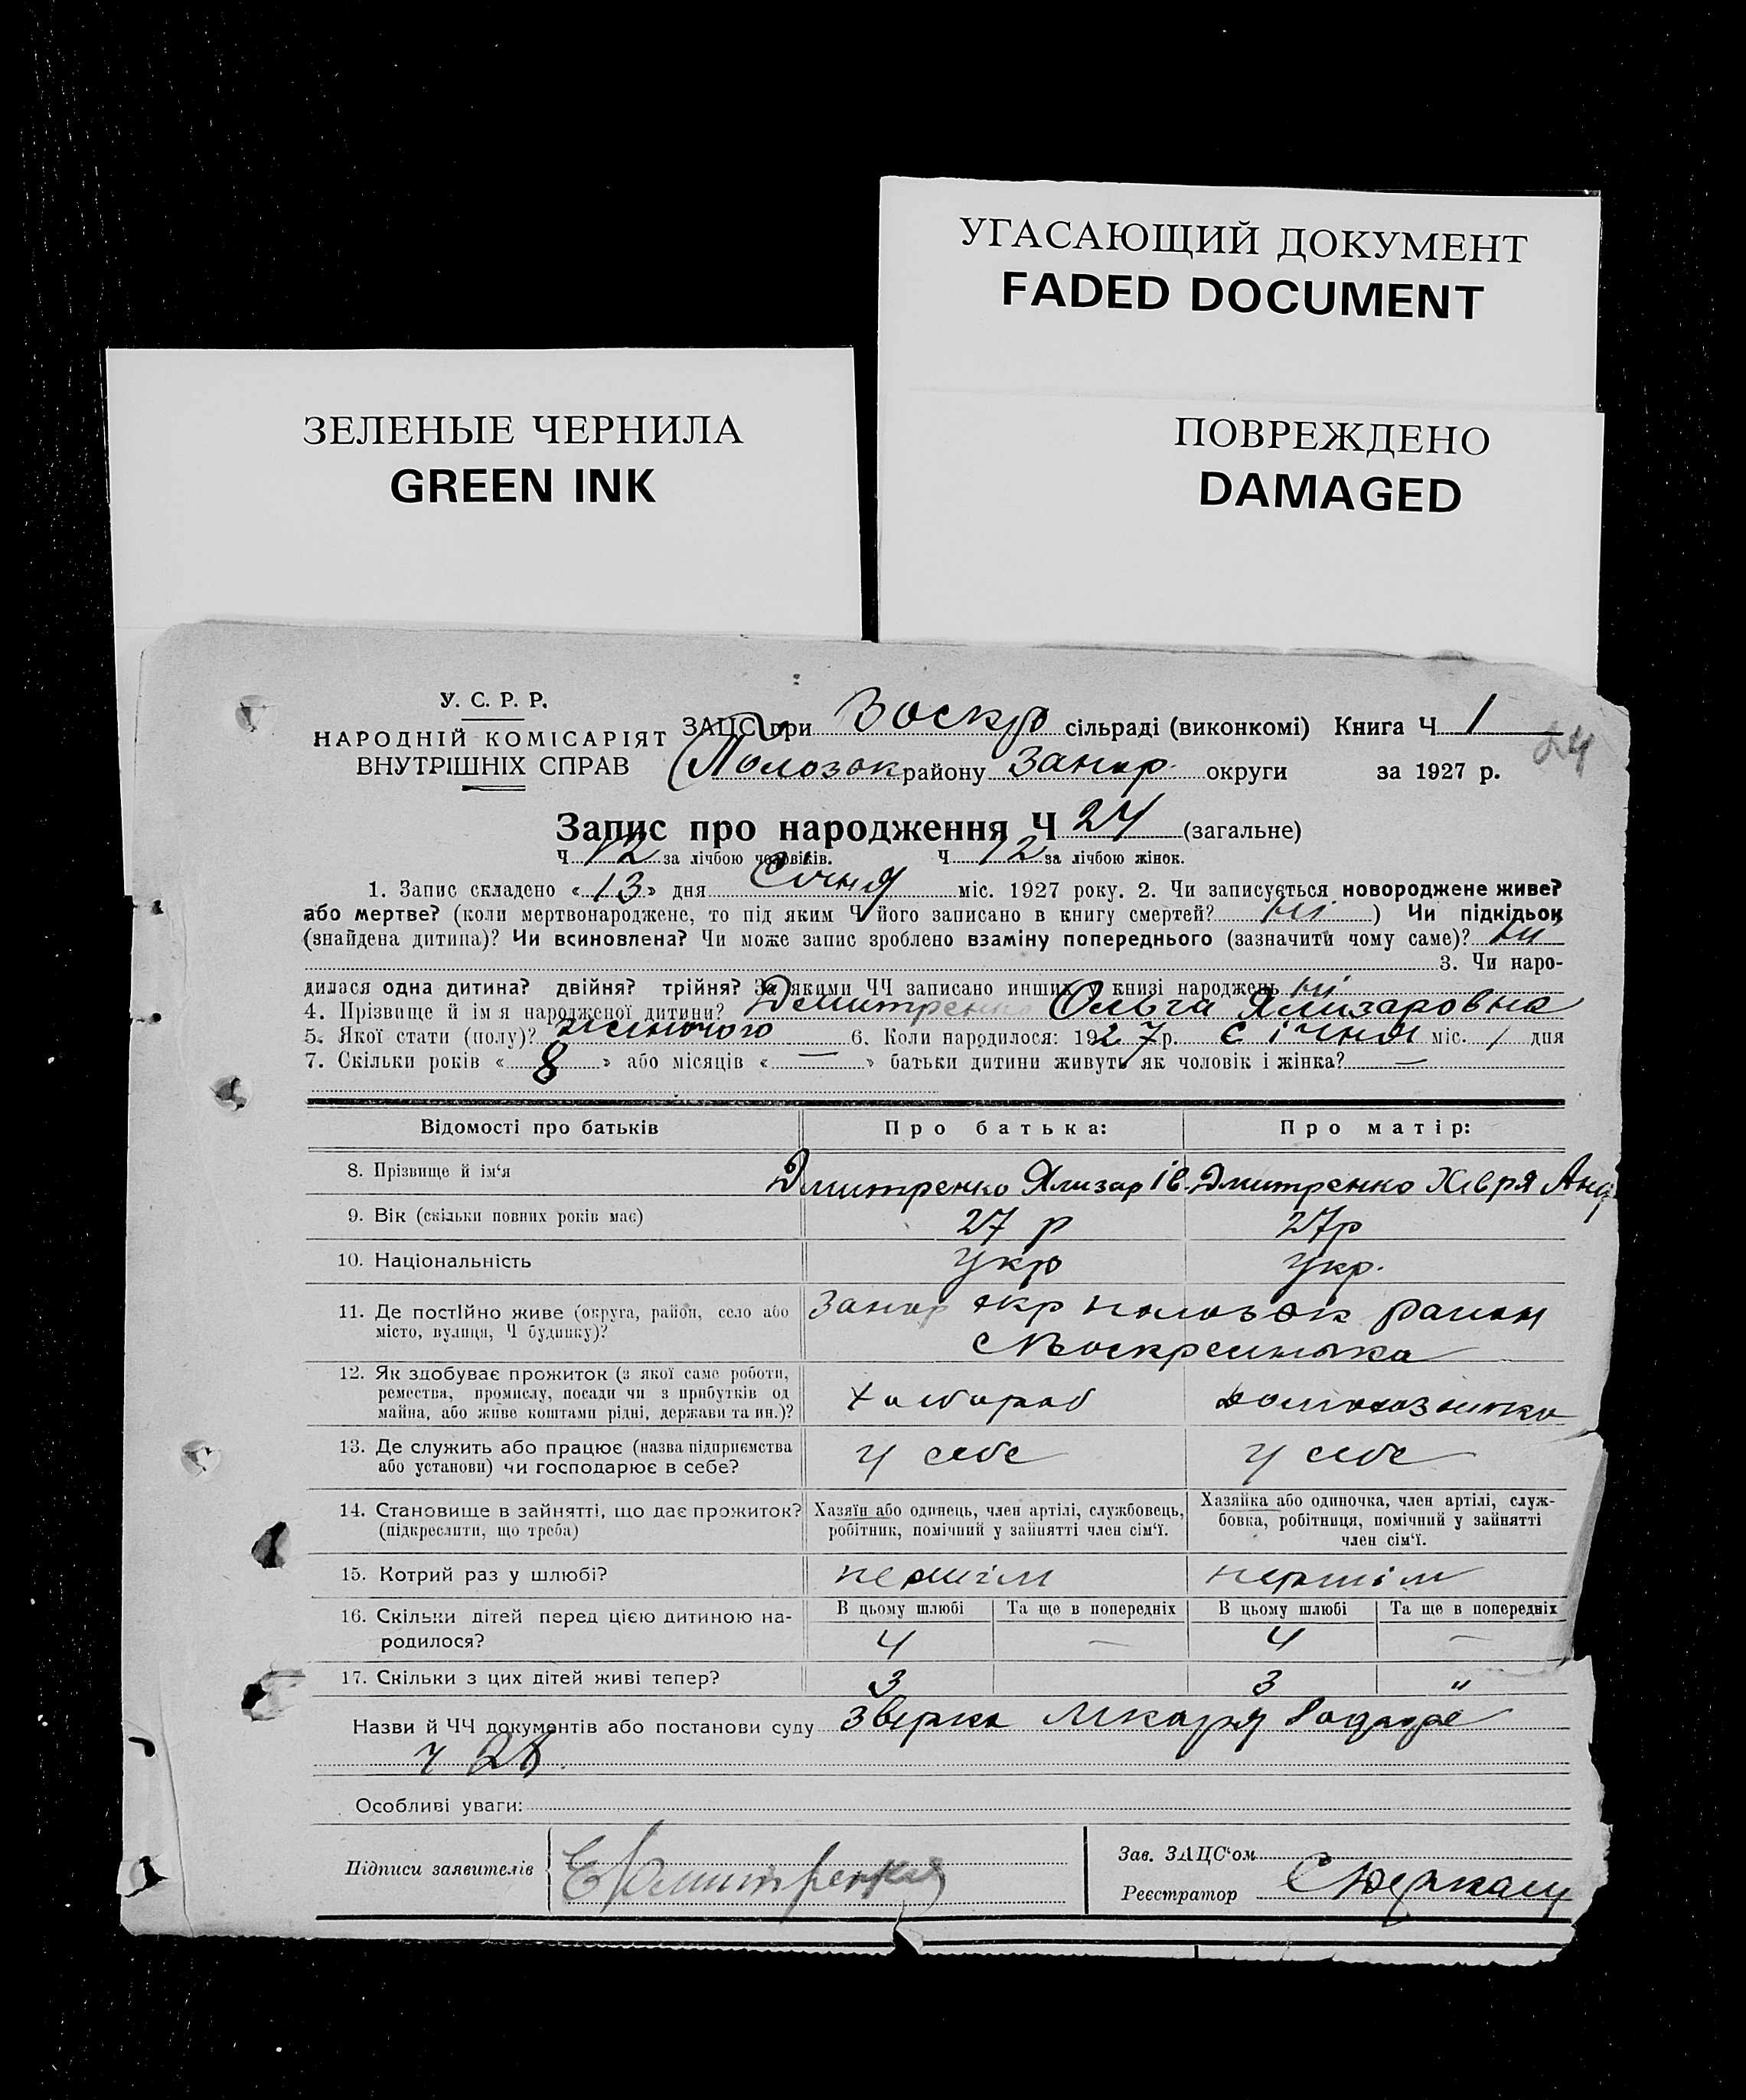 УГАСАЮЩИЙ ДОКУМЕНТ
FADED DOCUMENT
ЗЕЛЕНЫЕ ЧЕРНИЛА
GREEN INK
ПОВРЕЖДЕНО
DAMAGED
У. С. Р. Р.
НАРОДНІЙ КОМІСАРІЯТ
ВНУТРІШНІХ СПРАВ
ЗАЦС при Воскр сільраді (виконкомі) Книга Ч 1
24
Полозок району Запор. округи за 1927 р.
Запис про народження Ч 24 (загальне)
Ч 12 за лічбою чоловіків. Ч 12 за лічбою жінок.
1. Запис складено « 13 » дня Січня міс. 1927 року. 2. Чи записується новороджене живе?
або мертве? (коли мертвонароджене, то під яким Ч його записано в книгу смертей? ні ) Чи підкідьок
(знайдена дитина)? Чи всиновлена? Чи може запис зроблено взаміну попереднього (зазначити чому саме)? ні
3. Чи наро-
дилася одна дитина? двійня? трійня? За якими ЧЧ записано инших у книзі народжень ні
4. Прізвище й ім я народженої дитини? Дмитренко Ольга Ялизаровна
5. Якої стати (полу)? жіночого 6. Коли народилося: 1927 р. січня міс. 1 дня
7. Скільки років « 8 » або місяців « — » батьки дитини живуть як чоловік і жінка? —
Відомості про батьків Про батька: Про матір:
8. Прізвище й ім'я Дмитренко Ялизар Ів. Дмитренко Хівря Анд
9. Вік (скільки повних років має) 27 р 27р
10. Національність Укр Укр.
11. Де постійно живе (округа, район, село або Запор окр полозок район
місто, вулиця, Ч будинку)? с Воскресинька
12. Як здобуває прожиток (з якої саме роботи,
ремества, промислу, посади чи з прибутків од хлібороб
майна, або живе коштами рідні, держави та ин.)?
13. Де служить або працює (назва підприємства у себе у себе
або установи) чи господарює в себе?
14. Становище в зайнятті, що дає прожиток? Хазяїн або одинець, член артілі, службовець, Хазяйка або одиночка, член артілі, служ-
(підкреслити, що треба) робітник, помічний у зайнятті член сім'ї. бовка, робітниця, помічний у зайнятті
член сім'ї.
15. Котрий раз у шлюбі? першім першім
16. Скільки дітей перед цією дитиною на- В цьому шлюбі Та ще в попередніх В цьому шлюбі Та ще в попередніх
родилося? 4 — 4 —
17. Скільки з цих дітей живі тепер? 3 3 "
Назви й ЧЧ документів або постанови суду
ч
Особливі уваги:
Підписи заявителів Е Дмитренко
Зав. ЗАЦС'ом
Реєстратор